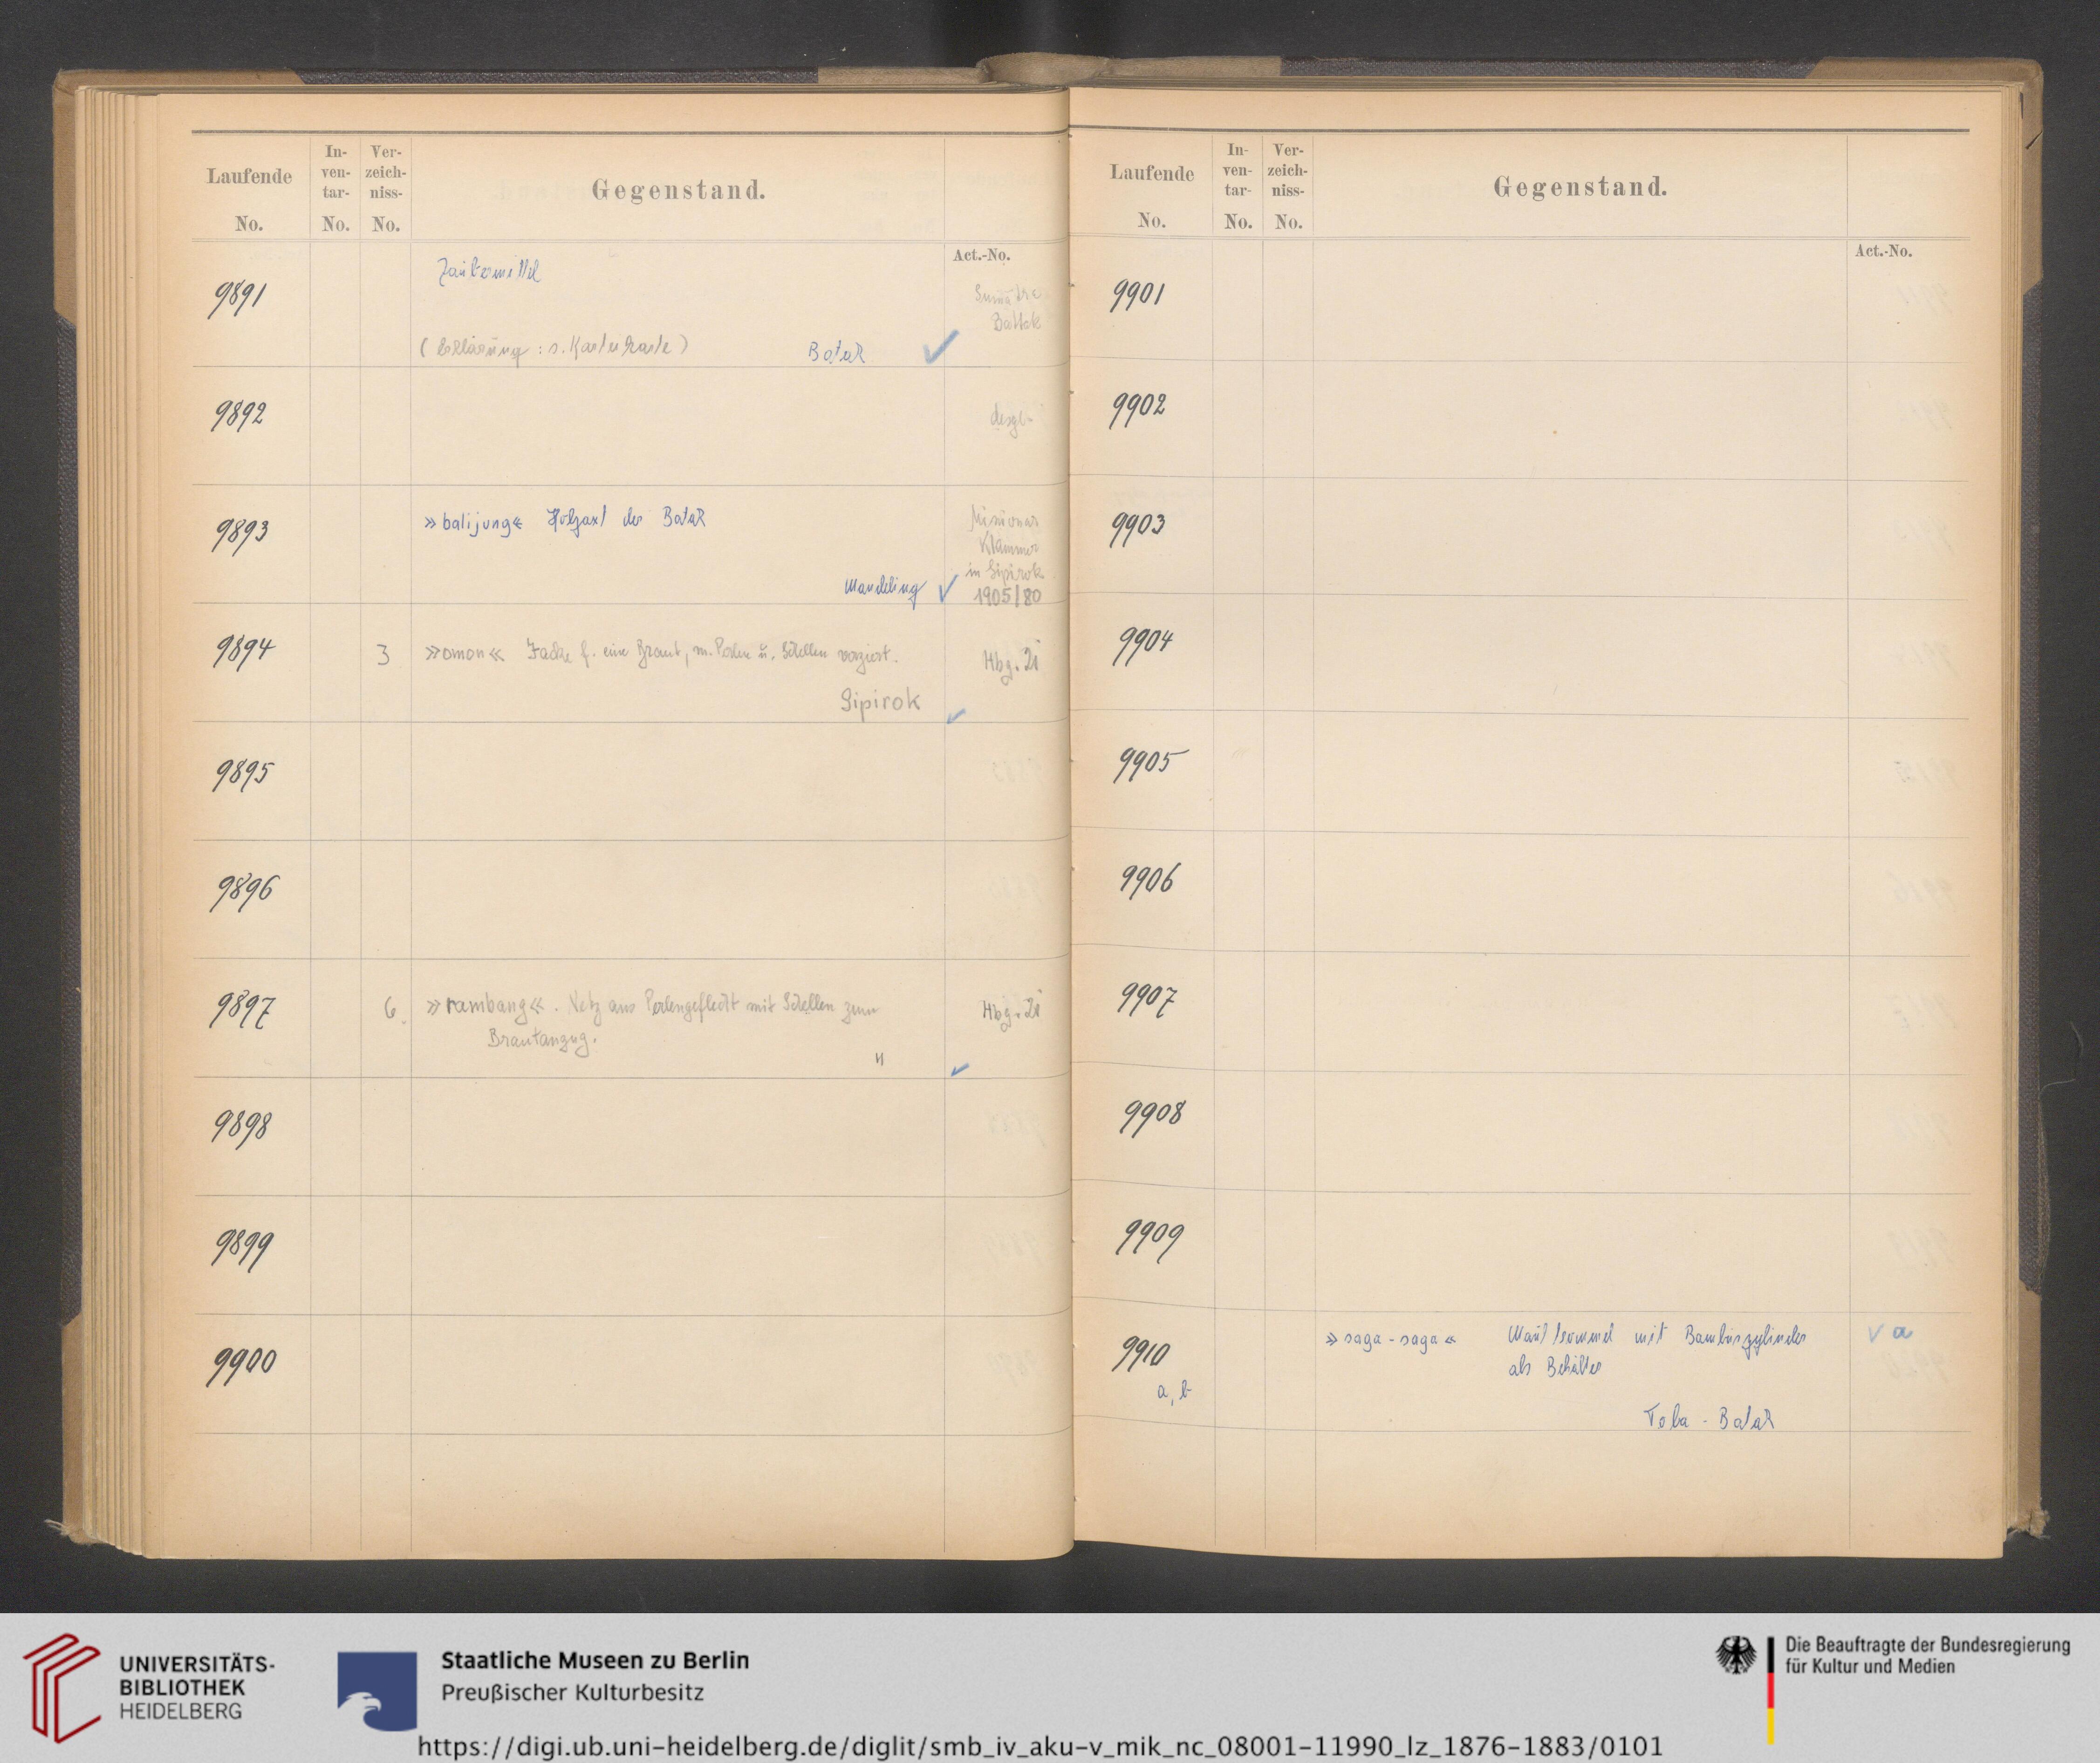 Laufende No.
In-ven-tar-No.
Ver-zeich-niss-No.
Gegenstand.
Act.-No.
9891
Zaubermittel
(Erklärung: s. Karteikarte)
Batak ✓
Sumatra
Battak
9892
desgl.
9893
»balijung« Holzaxt der Batak
Mandeling ✓
Missionar
Klammer
in Sipirok
1905/80
9894
3
»omon« Jacke f. eine Braut, m. Perlen u. Schellen verziert.
Hbg. 21
Sipirok ✓
9895
9896
9897
6.
»rambang«. Netz aus Perlengeflecht mit Schellen zum
Brautanzug.
Hbg. 21
" ✓
9898
9899
9900
Laufende No.
In-ven-tar-No.
Ver-zeich-niss-No.
Gegenstand.
Act.-No.
9901
9902
9903
9904
9905
9906
9907
9908
9909
9910
a, b
»saga-saga« Maultrommel mit Bambuszylinder
als Behälter
✓ a
Toba - Batak
UNIVERSITÄTS-
BIBLIOTHEK
HEIDELBERG
Staatliche Museen zu Berlin
Preußischer Kulturbesitz
Die Beauftragte der Bundesregierung
für Kultur und Medien
https://digi.ub.uni-heidelberg.de/diglit/smb_iv_aku-v_mik_nc_08001-11990_lz_1876-1883/0101